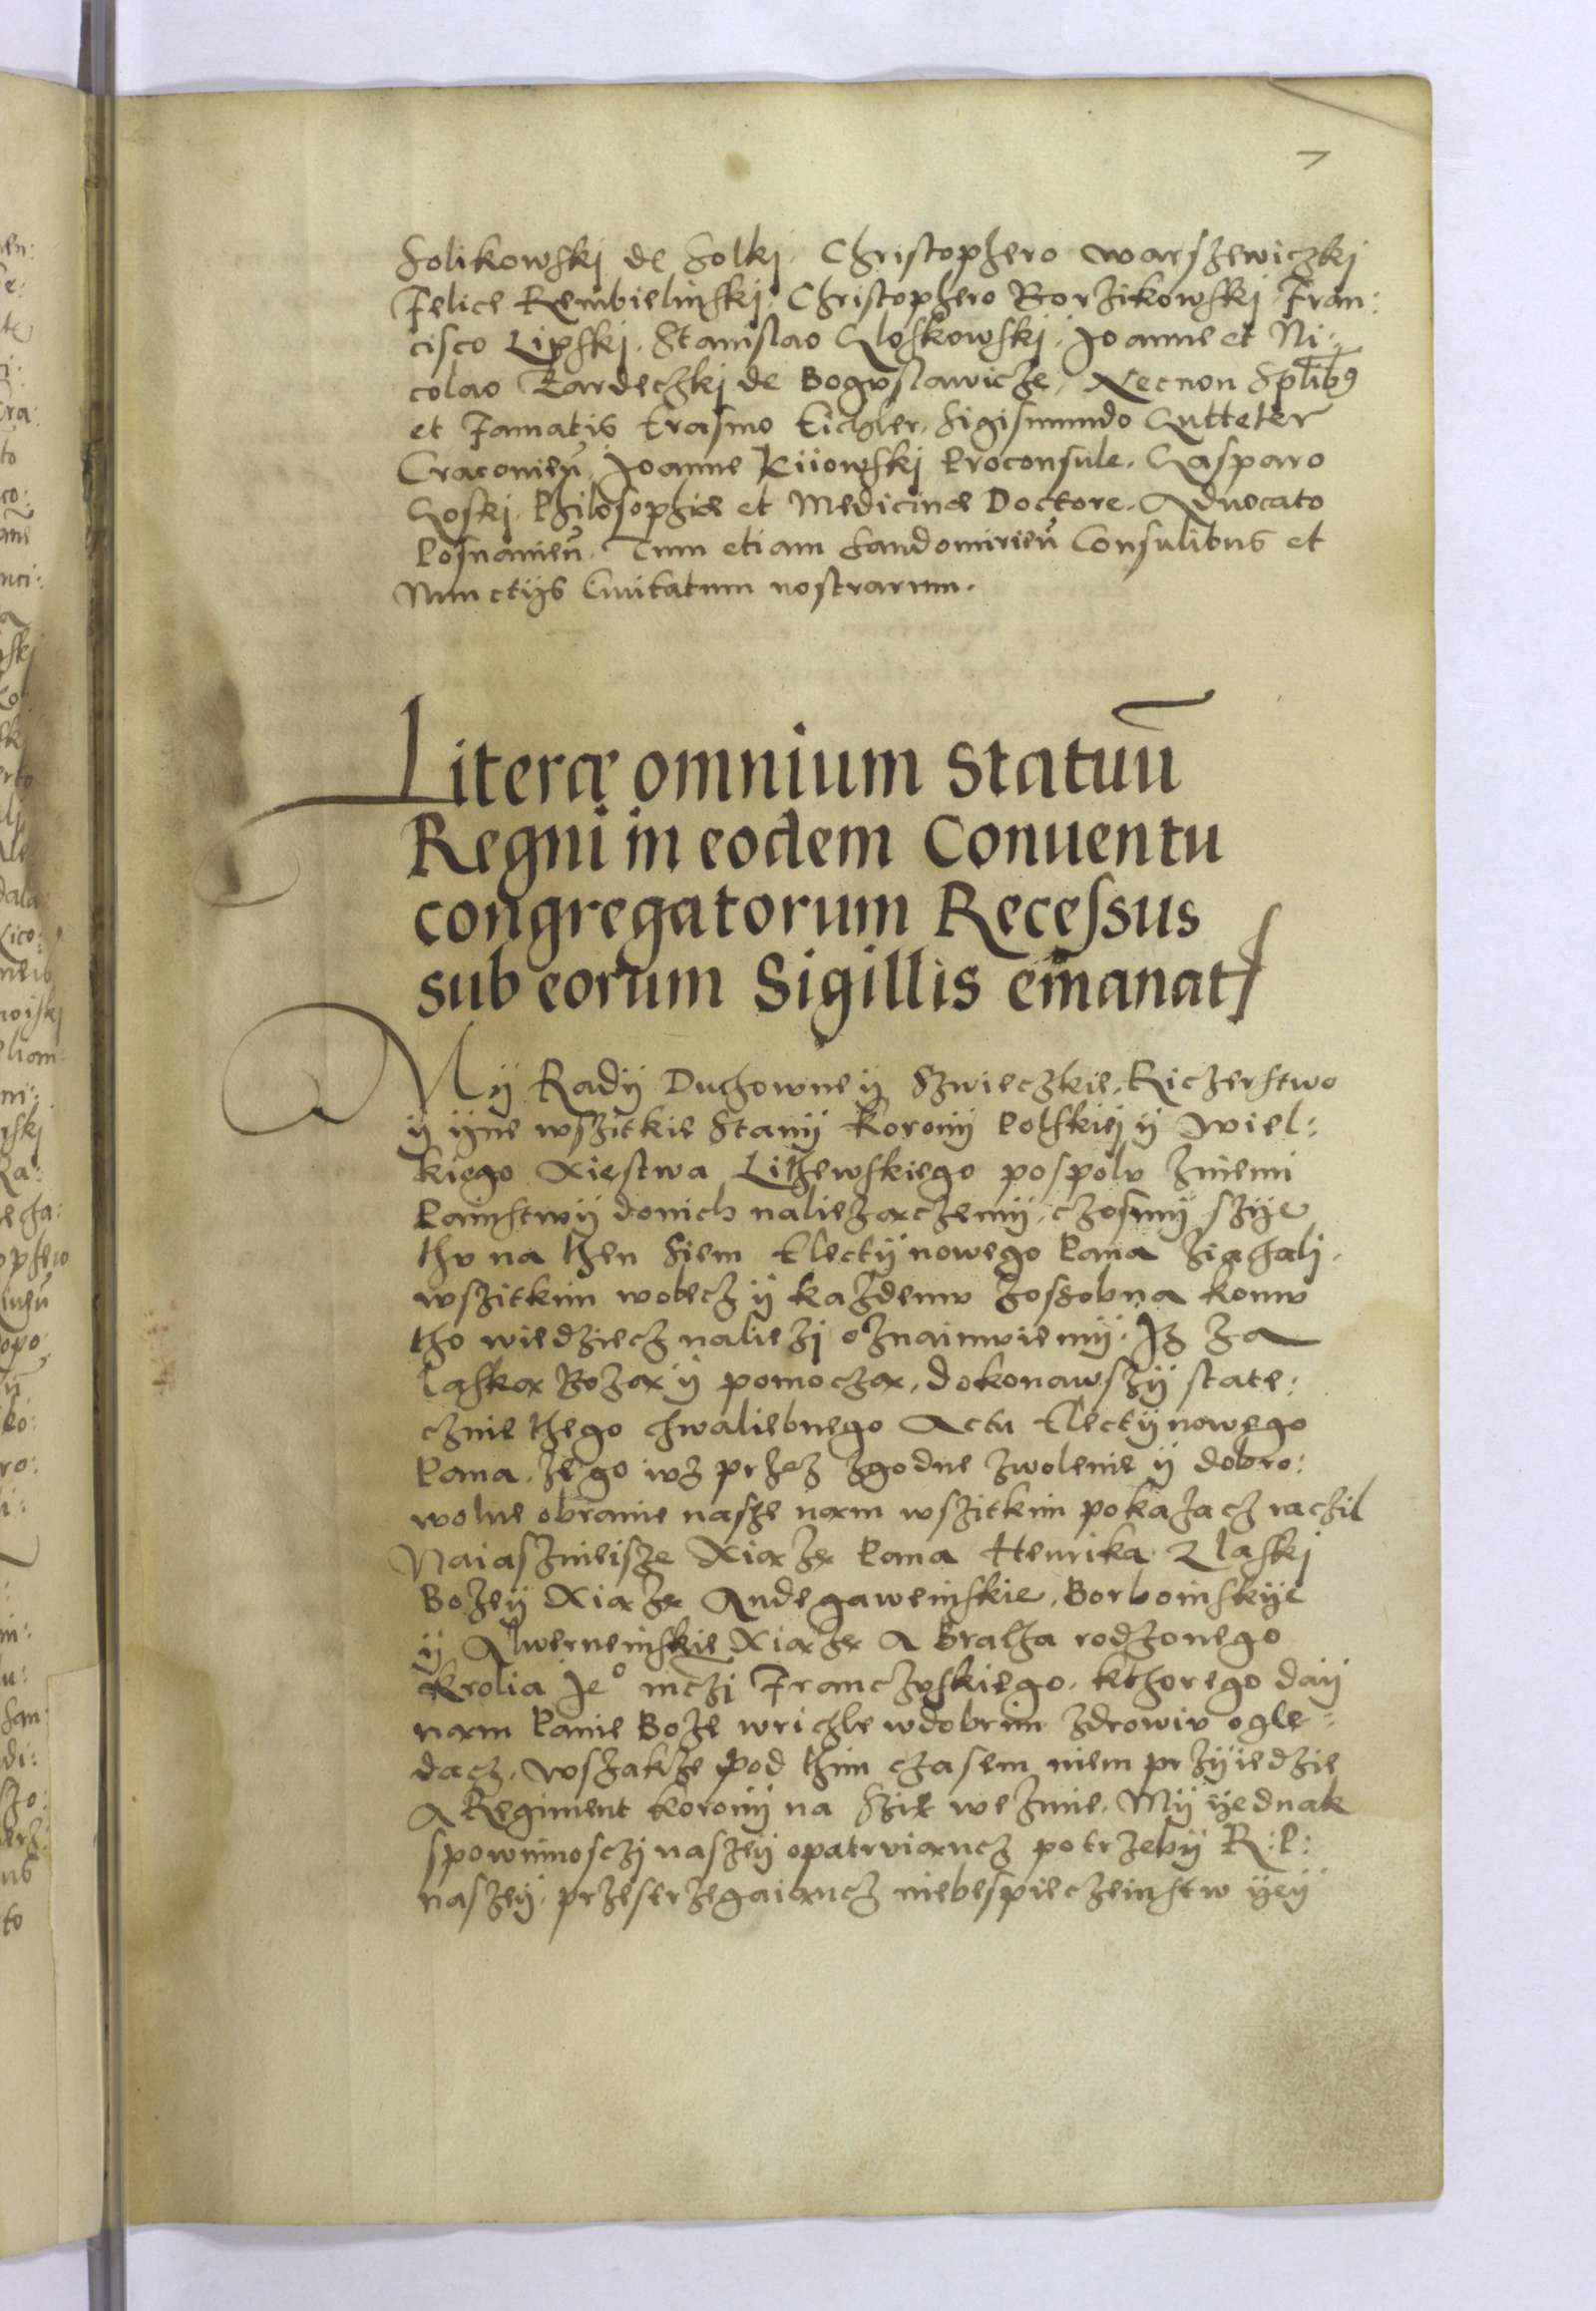 7
Solikowskj de Solkj. Christophero Warszewiczkj
Felice Rembielinskj. Christophero Borzikowskj Fran:
cisco Lipskj. Stanislao Gloskowskj. Joanne et Ni:
colao Zardeczkj de Boguslawicze. Necnon Splib9
et Famatis Erasmo Eichler. Sigismundo Gutteter
Cracovień. Joanne Kiiowskj Proconsule. Gasparo
Goskj. Philosophiæ et Medicinæ Doctore. Advocato
Posnanień. Tum etiam Sandomirień Consulibus et
Nunctijs Civitatum nostrarum.
Literæ omnium Statuū
Regni in eodem Conuentu
congregatorum Recessus
sub eorum Sigillis emanat
My Radÿ Duchowne ÿ Szwieczkie. Riczerstwo
ÿ ÿne wszitkie Stanÿ Koronÿ Polskiej ÿ Wiel:
kiego Xięstwa Lithewskiego pospolv zniemi
Panstwÿ donich należączemÿ. czosmÿ szÿe
thv na then Siem Electÿ nowego Pana ziachalj.
wszitkim wobecz ÿ każdemv zossobna komv
tho wiedziecz nalieżj oznaimviemÿ. Iż za
łaską Bożą ÿ pomoczą, dokonawszÿ state:
cznie thego chwaliebnego Actu Electÿ nowego
Pana. że go ivz przez zgodne zwolenie ÿ dobro:
wolne obranie nasze nam wszitkim pokazacz raczil
Naiasznieisze Xiążę Pana Henrika Z łaskj
Bożeÿ Xiążę Andegaweinskie. Borboinskÿe
ÿ Alwerneinskie Xiążę A Bratha rodzonego
Krolia Je° mczj Franczvskiego. kthorego daÿ
nam Panie Boże wrichle wdobrim zdrowiv oglę:
dacz. wszakże pod thim czasem niem przÿiedzie
A Regiment Koronÿ na Szię wezmie. Mÿ ÿednak
spowinnosczj naszeÿ opatrviancz potrzebÿ R: P:
naszeÿ. przestrzegaiancz niebespieczeinstw ÿeÿ